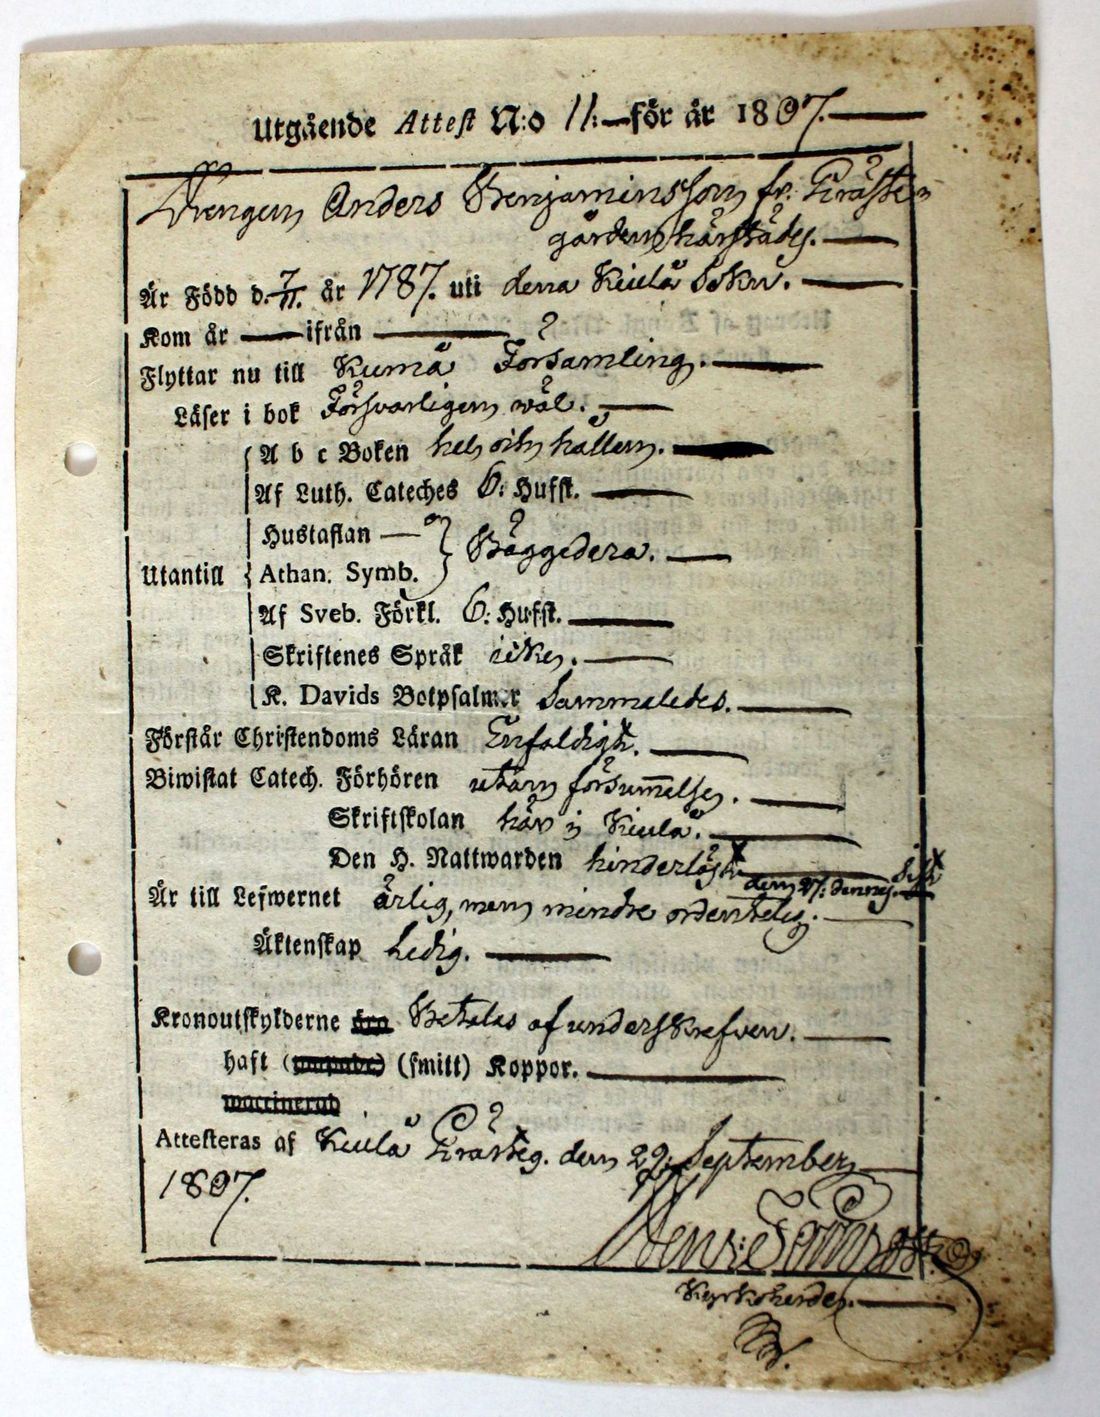 Utgående Attest N:o 11:— för år 1807.—
Drengen Anders Benjaminsson fr. Präste-
gården härstädes.—
Är Född d. 7/11. år 1787. uti denna Kiulå Sokn.—
Kom år — ifrån —
Flyttar nu till Kumå Församling.—
Läser i bok Försvarligen wäl.—
A b c Boken hel och hållen.—
Af Luth. Cateches 6: Hufst.—
Hustaflan —
Athan. Symb. } Bäggedera.—
Utantill
Af Sveb. Förkl. 6: Hufst.—
Skriftenes Språk icke.—
K. Davids Botpsalmer Sammaledes.—
Förstår Christendoms Läran Enfaldigt.—
Biwistat Catech. Förhören utan försummelse.—
Skriftskolan här i Kiulå.—
Den H. Nattwarden hinderlöst
den 27: dennes. sist
Är till Lefwernet ärlig, men mindre ordentelig.—
Äktenskap Ledig.—
Kronoutskylderne äro Betalas af underskrefven.—
haft (ympade) (smitt) Koppor.—
waccinerad
Attesteras af Kiulå Prästeg. den 29: September
1807.
Kyrkoherde.—